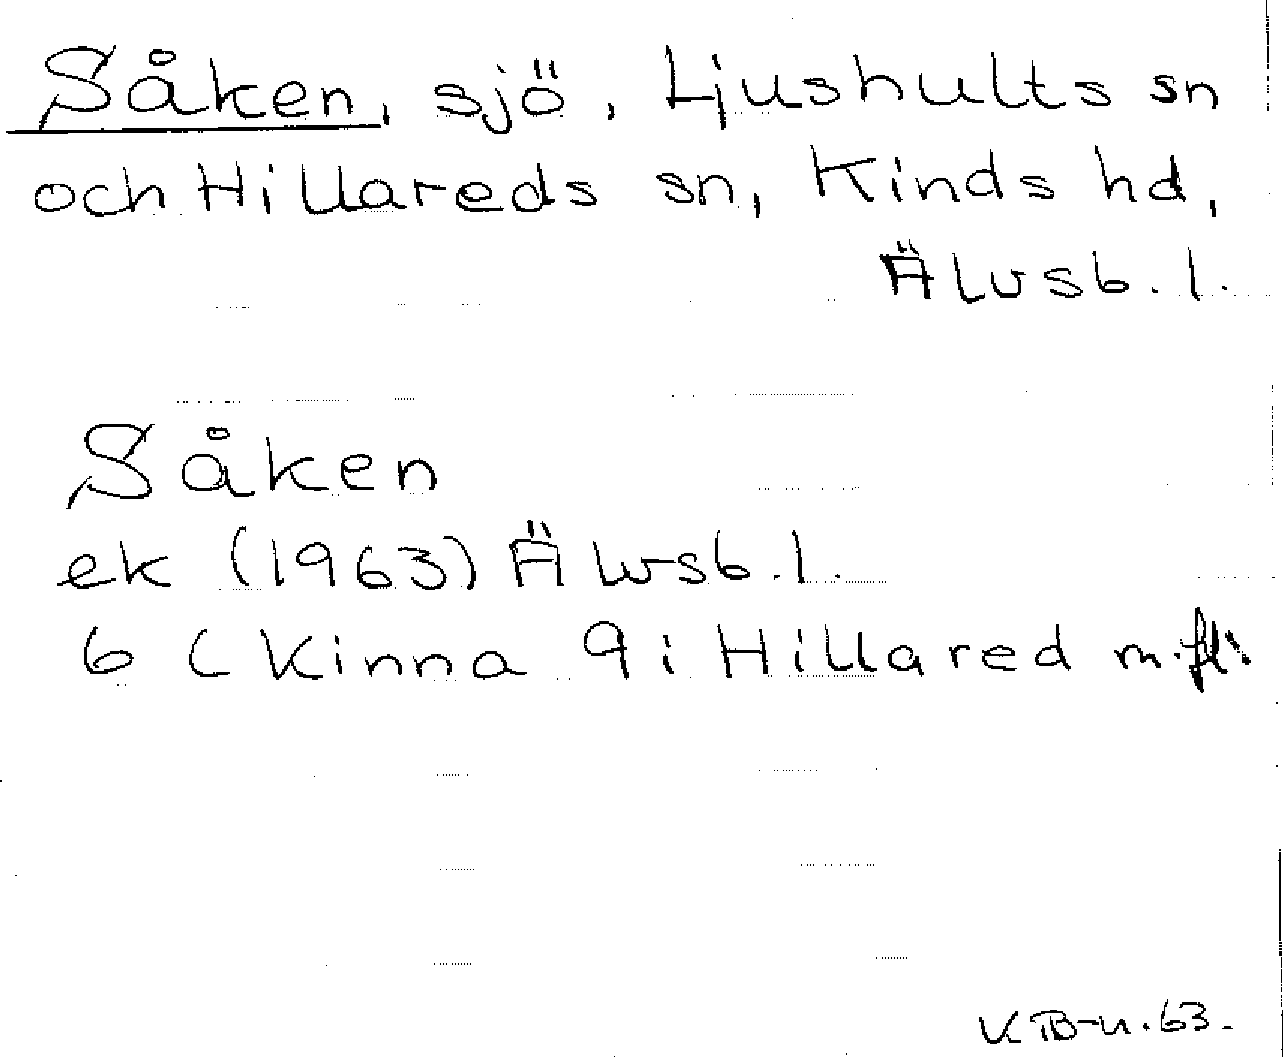 Såken, sjö, Ljushults sn
och Hillareds sn, Kinds hd,
Älvsb. l.
Såken
ek (1963) Älvsb. l.
6 ( Kinna 9 i Hillared m.fl.
63.